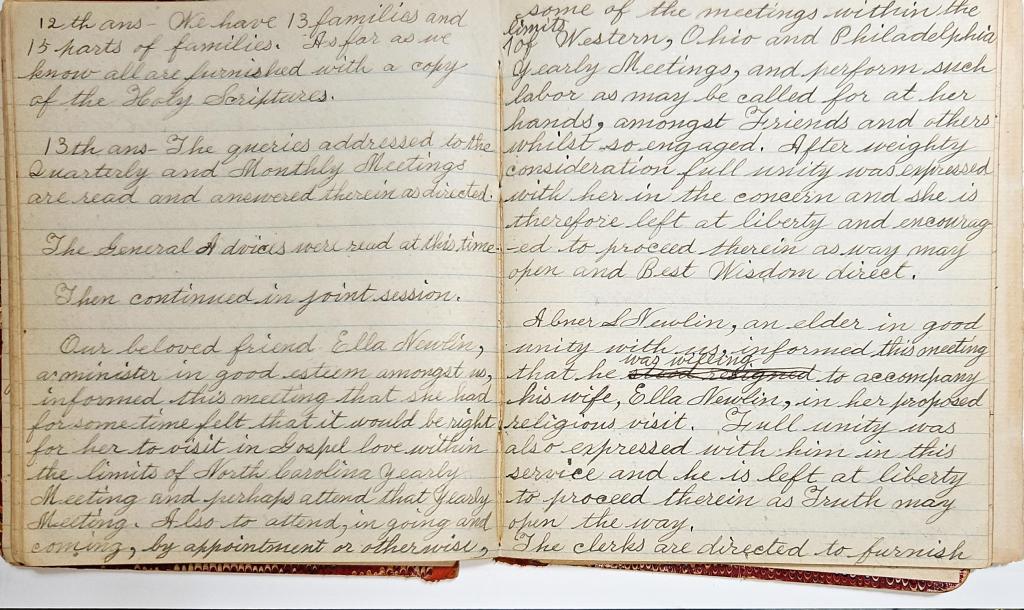 12th ans- We have 13 families and
15 parts of families. As far as we
know all are furnished with a copy
of the Holy Scriptures.
13th ans- The queries addressed to the
Quarterly and Monthly Meetings
are read and anewered therein as directed.
The General Advices were read at this time.
Then continued in joint session.
Our beloved friend Ella Newlin,
a minister in good esteem amongst us,
informed this meeting that she had
for some time felt that it would be right
for her to visit in Gospel love within
the limits of North Carolina Yearly
Meeting and perhaps attend that Yearly
Meeting. Also to attend, in going and
coming, by appointment or otherwise,
some of the meetings within the
limits
of Western, Ohio and Philadelphia
Yearly Meetings, and perform such
labor as may be called for at her
hands, amongst Friends and others
whilst so engaged. After weighty
consideration full unity was expressed
with her in the concern and she is
therefore left at liberty and encourag-
-ed to proceed therein as way may
open and Best Wisdom direct.
Abner L Newlin, an elder in good
unity with us, informed this meeting
was willing
that he stood resigned to accompany
his wife, Ella Newlin, in her proposed
religious visit. Full unity was
also expressed with him in this
service and he is left at liberty
to proceed therein as Truth may
open the way.
The clerks are directed to furnish